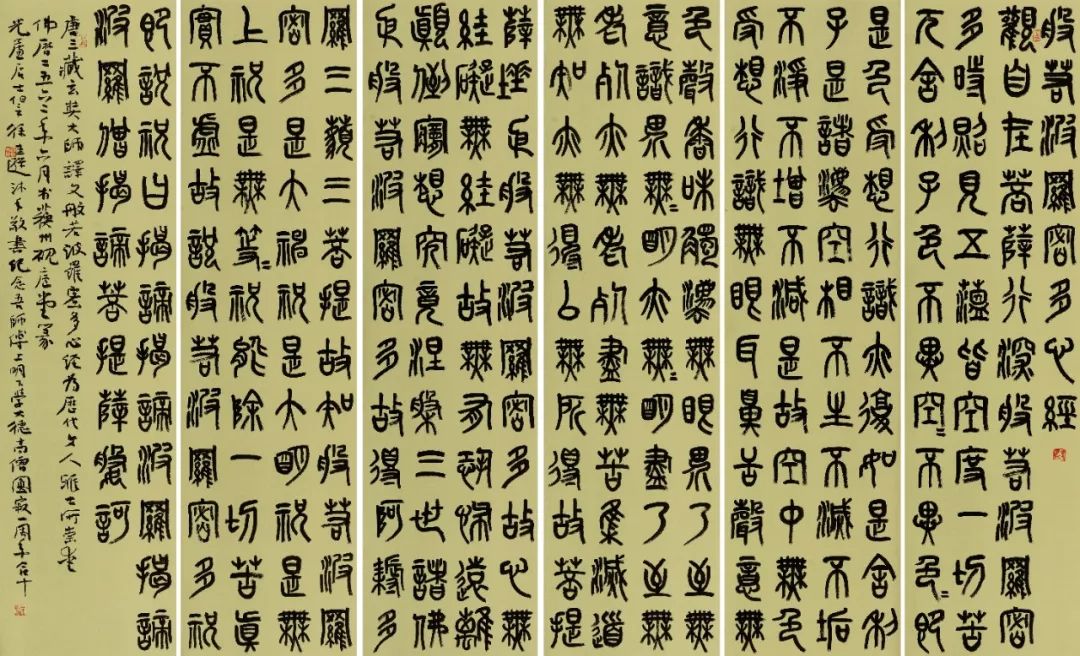 般若波羅密多心經
觀自在菩薩行深般若波羅密
多時照見五蘊皆空度一切苦
厄舍利子色不異空=不異色=即
是色受想行識亦復如是舍利
子是諸法空相不生不滅不垢
不淨不增不減是故空中無色
受想行識無眼耳鼻舌聲意無
色聲香味觸法無眼界乃至無
意識界無=明亦無=明盡乃至無
老死亦無老死盡無苦集滅道
無知亦無得以無所得故菩提
薩埵依般若波羅密多故心無
罣礙無罣礙故無有恐怖遠離
顛倒夢想究竟涅槃三世諸佛
依般若波羅密多故得阿耨多
羅三藐三菩提故知般若波羅
密多是大神咒是大明咒是無
上咒是無等=咒能除一切苦真
實不虛故說般若波羅密多咒
即說咒曰揭諦揭諦波羅揭諦
波羅僧揭諦菩提薩婆訶
唐三藏玄奘大師譯文般若波羅密多心經為歷代文人雅士所崇
佛曆二五六二年六月於蘇州硯廬堂篆
光廬居士沐手敬書紀念吾師傅上明下學大德高僧圓寂一周年合十